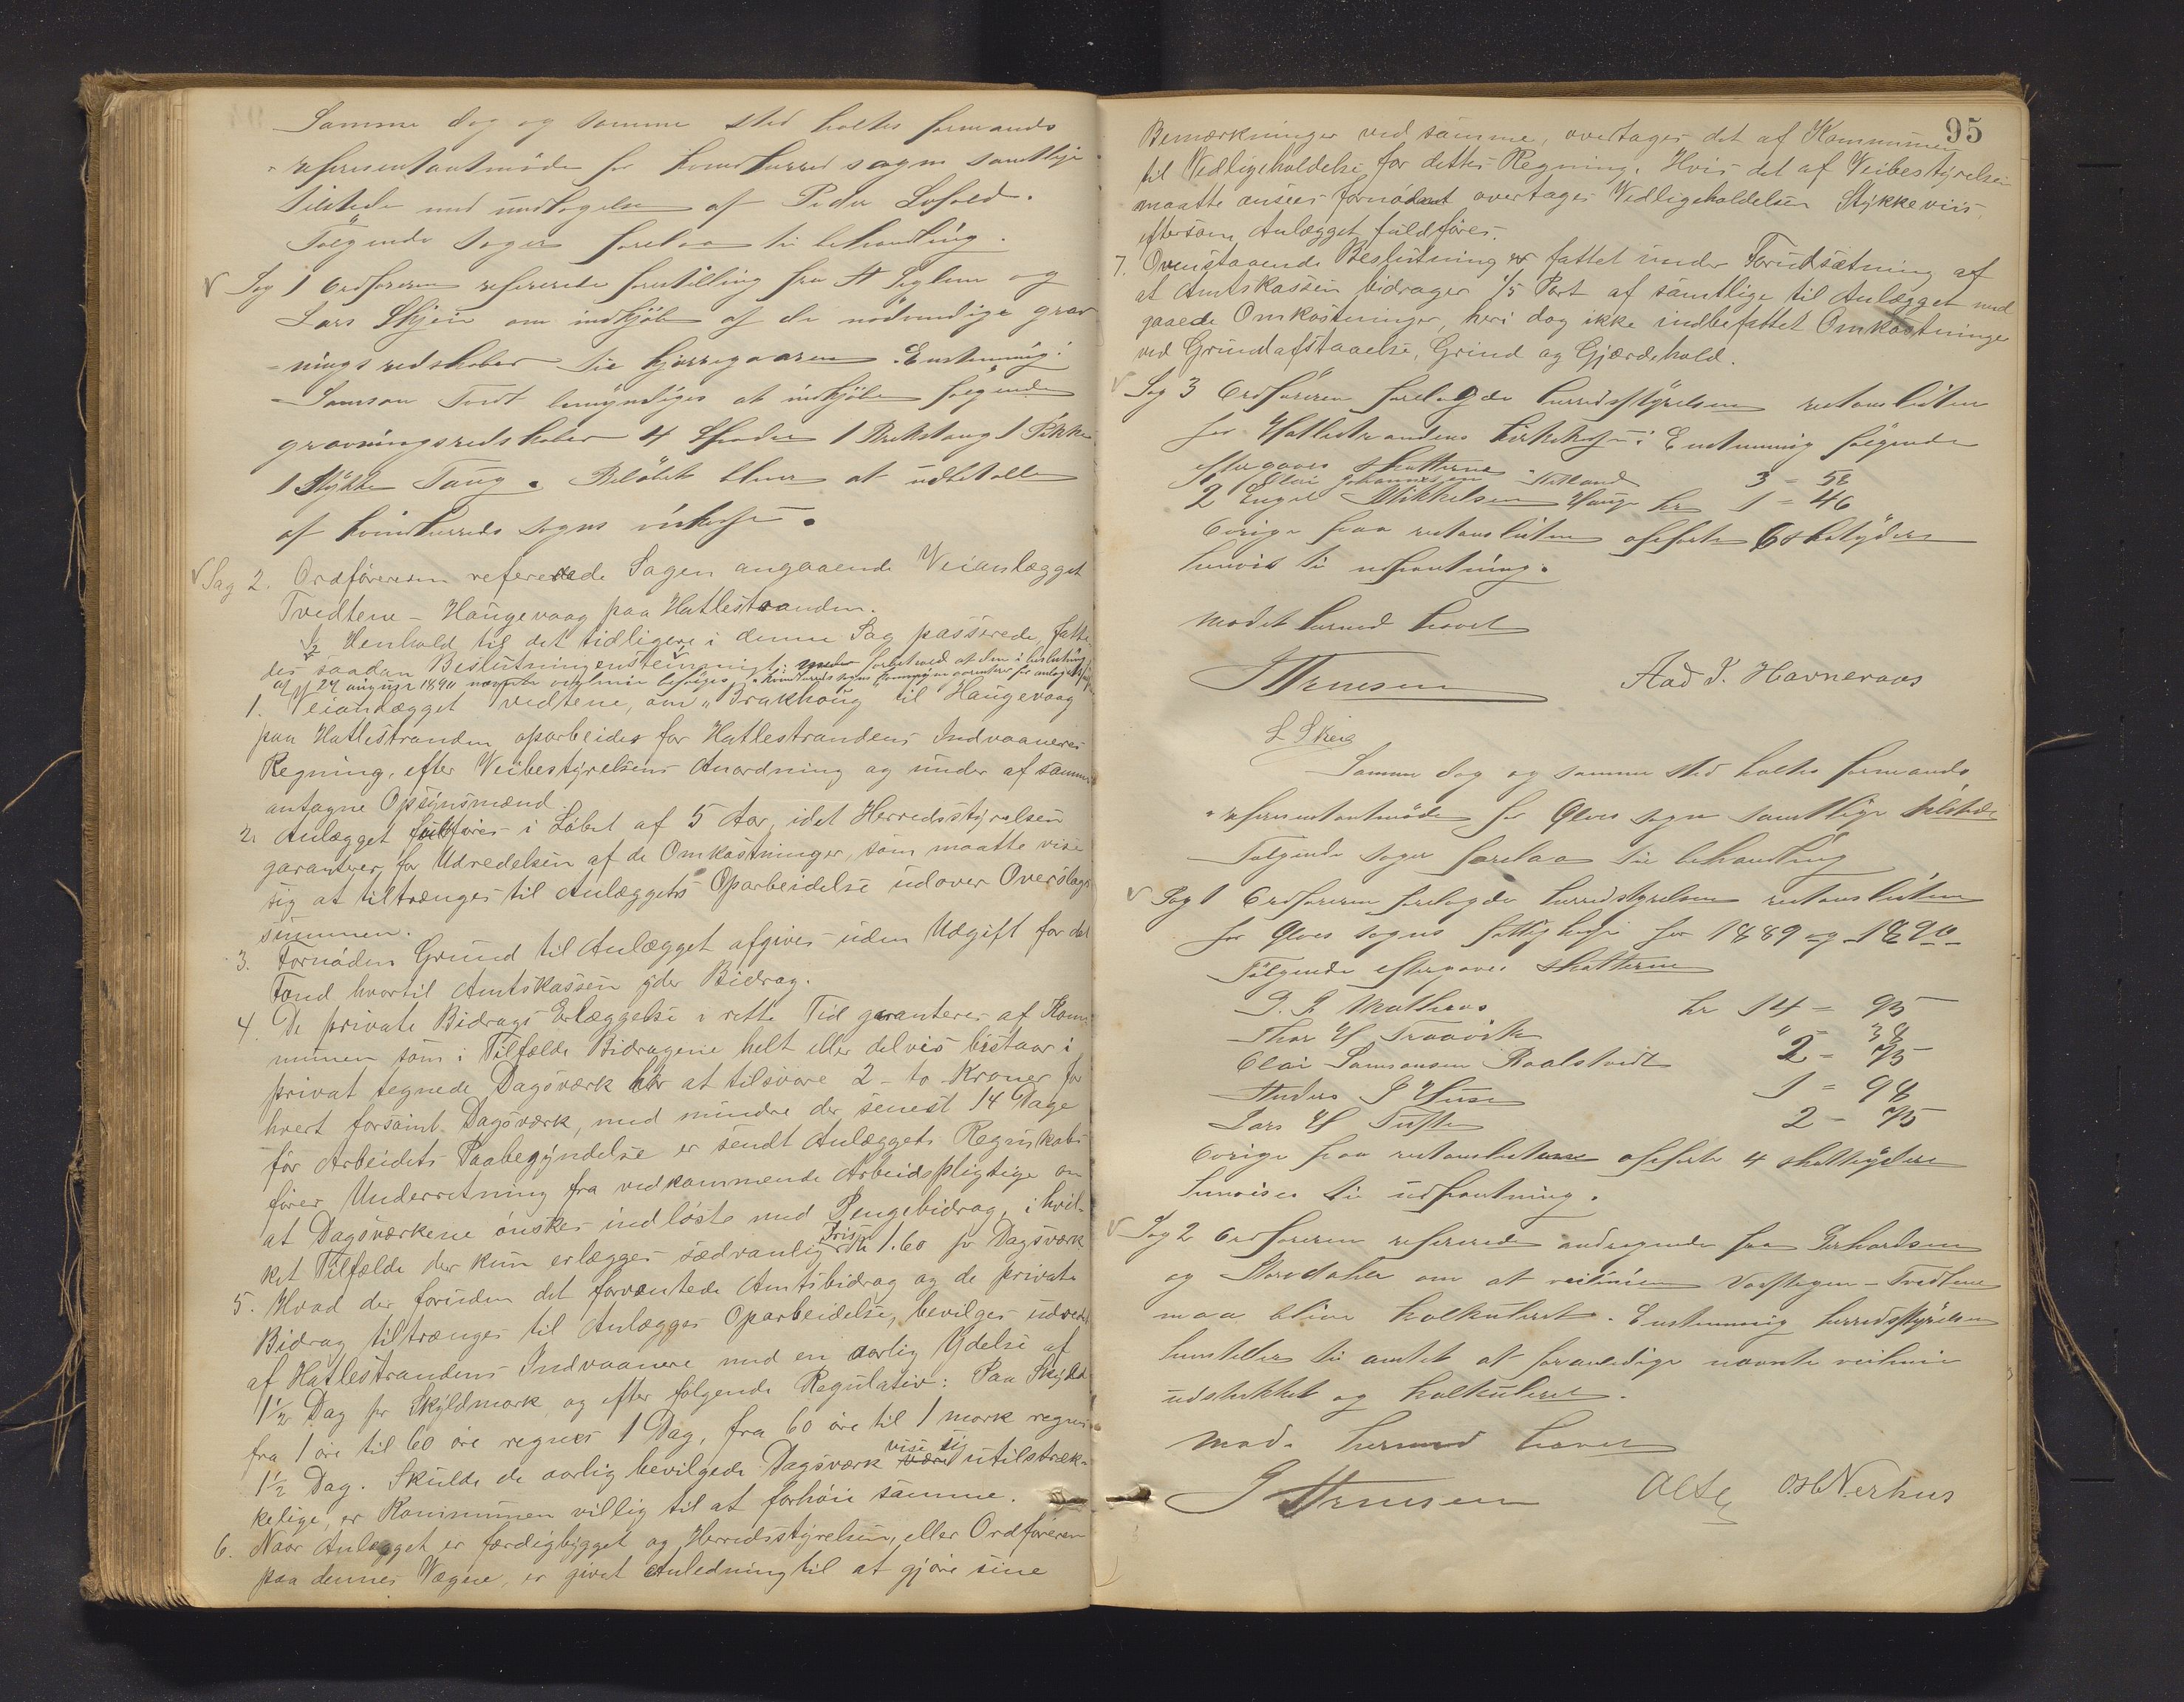 Samme dag og samme sted holtes formands
- representantmöde for kvindherred sogn samtlige
tilstede med undtagelse af Peder
Følgende sager forelaa til behandling.
Sag 1 Ordføreren refererede forestilling fra A Seglem og
Lars Skjeie om indkjöb af de nödvendige grav
- nings redskaber til kjerregaaren. Enstemmig:
Samson Tvedt bemyndiges at indkjöbe følgende
gravningsredskaber 4 Spader 1 Brekstang 1 Pikke
1 Stykke Taug. Belöbet bliver at udbetale
af kvindherreds sogns
Sag 2. Ordföreren refererede Sagen angaaende Veianlægget
Tvedtene - Haugevaag paa Hatlestranden.
I Henhold til det tidligere i denne Sag passerede, fatte-
des saadan Beslutning enstemmigt: forbehold at den i beslutning
af 24 august 1890 nævnte veglinie
1. Veianlægget Tvedtene, om "Trakhoug" til Haugevaag
paa Hatlestranden oparbeides for Hatlestrandens Indvaaneres
Regning, efter Veibestyrelsens Anordning og under af samme
antagne Opsynsmænd.
2. Anlægget fuldføres i Löbet af 5 Aar, idet Herredsstyrelsen
garanterer for Udredelsen af de Omkostninger, som maatte vise
sig at tiltrænges til Anlæggets Oparbeidelse udover Overslags
summen.
3. Fornöden Grund til Anlægget afgives uden Udgift for det
Fond hvortil Amtskassen yder Bidrag.
4. De private Bidrags Erlæggelse i rette Tid garanteres af Kom-
munen som i Tilfælde Bidragene helt eller delvis bestaar i
privat tegnede Dagsværk har at tilsvare 2 - to Kroner for
hvert forsömt Dagsværk, med mindre der senest 14 Dage
för Arbeidets Paabegyndelse er sendt Anlæggets Regnskabs
förer Underretning fra vedkommende Arbeidspligtige om
at Dagsværkene önskes indlöste med Pengebidrag, i hvil-
ket Tilfælde der kun erlægges sædvanlig Pris Kr 1.60 pr Dagsværk
5. Hvad der foruden det forventede Amtsbidrag og de private
Bidrag tiltrænges til Anlægges Oparbeidelse, bevilges udredet
af Hatlestrandens Indvaanere med en aarlig Ydelse af
1½ Dag pr Skyldmark og efter fölgende Regulativ: Paa Skyld
fra 1 öre til 60 öre regnes 1 Dag, fra 60 öre til 1 mark regnes
1½ Dag. Skulde de aarlig bevilgede Dagsværk være vise sig utilstræk-
kelige, er Kommunen villig til at forhöie samme.
6. Naar Anlægget er færdigbygget og Herredsstyrelsen, eller Ordföreren
paa dennes Vegne, er givet Anledning til at gjöre sine
95
Bemærkninger ved samme, overtages det af Kommunen
til Vedligeholdelse for dettes Regning. Hvis det af Veibestyrelsen
maatte ansees fornödent overtages Vedligeholdelsen Stykkeviis,
eftersom Anlægget fuldföres.
7. Ovenstaaende Beslutning er fattet under Forudsætning af
at Amtskassen bidrager 1/5 Part af samtlige til Anlægget med
gaaede Omkostninger, heri dog ikke indbefattet Omkostninger
ved Grundafstaaelse, Grind og Gjærdehold.
Sag 3 Ordføreren forelagde herredsstyrelsen restanslisten
for Hatlestrandens kirkekasse: Enstemmig følgende
eftergaves skatterne
1 Olai Johannessen 3 = 58
2 Engel Mikkelsen Hauge kr 1 = 46
Övrige paa restanslisten opførte skatydere
henvises til udpantning.
Mødet hermed hævet
Aad J. Havneraas
L Skeie
Samme dag og samme sted holtes formands
- representantmöde for Ølves sogn samtlige tilstede
Følgende sager forelaa til behandling
Sag 1 Ordføreren forelagde herredstyrelsen restanslisten
for Ølves sogns fattigkasse for 1889 og 1890
Følgende eftergaves skatterne
kr 14 = 95
Thor H " = 38
Olai Samsonsen 2 - 75
Anders 1 = 98
Lars H Tufte 2 - 75
Övrige paa restanslisterne opførte 4 skatteydere
henvises til udpantning.
Sag 2 Ordføreren refererede andragende fra Gerhardsen
og om at veilinien - Tvedtene
maa blive kalkuleret. Enstemmig herredsstyrelsen
henstiller til amtet at foranledige nævnte veilinie
udstukket og kalkuleret.
Möde hermed hævet